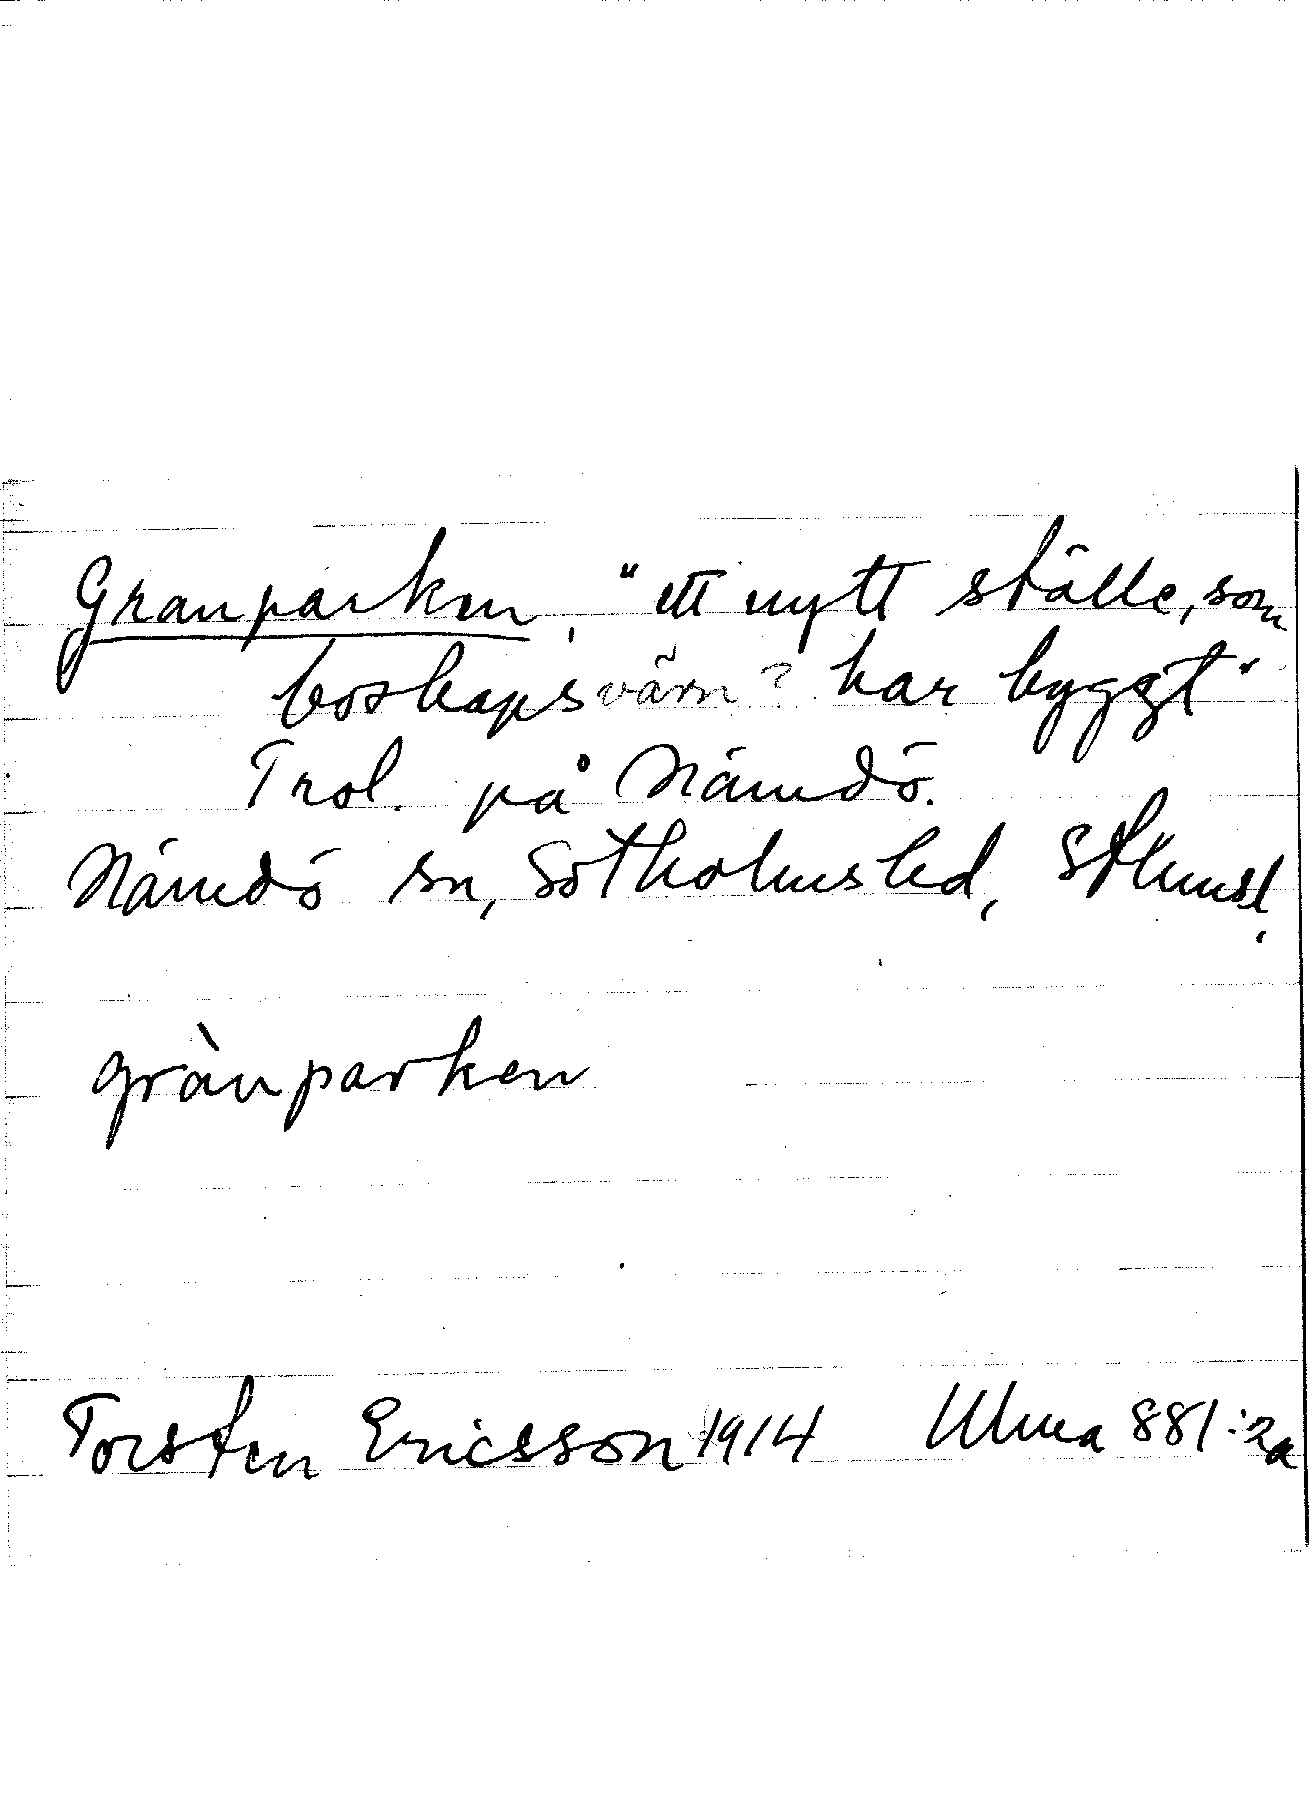 Granparken, "ett nytt ställe, som
boskapsvärn? har byggt"
Trol. på Nämdö.
Nämdö sn, Sotholmshd, Sthmsl.
grànparken
Torsten Ericsson 1914 Ulma 881:2a